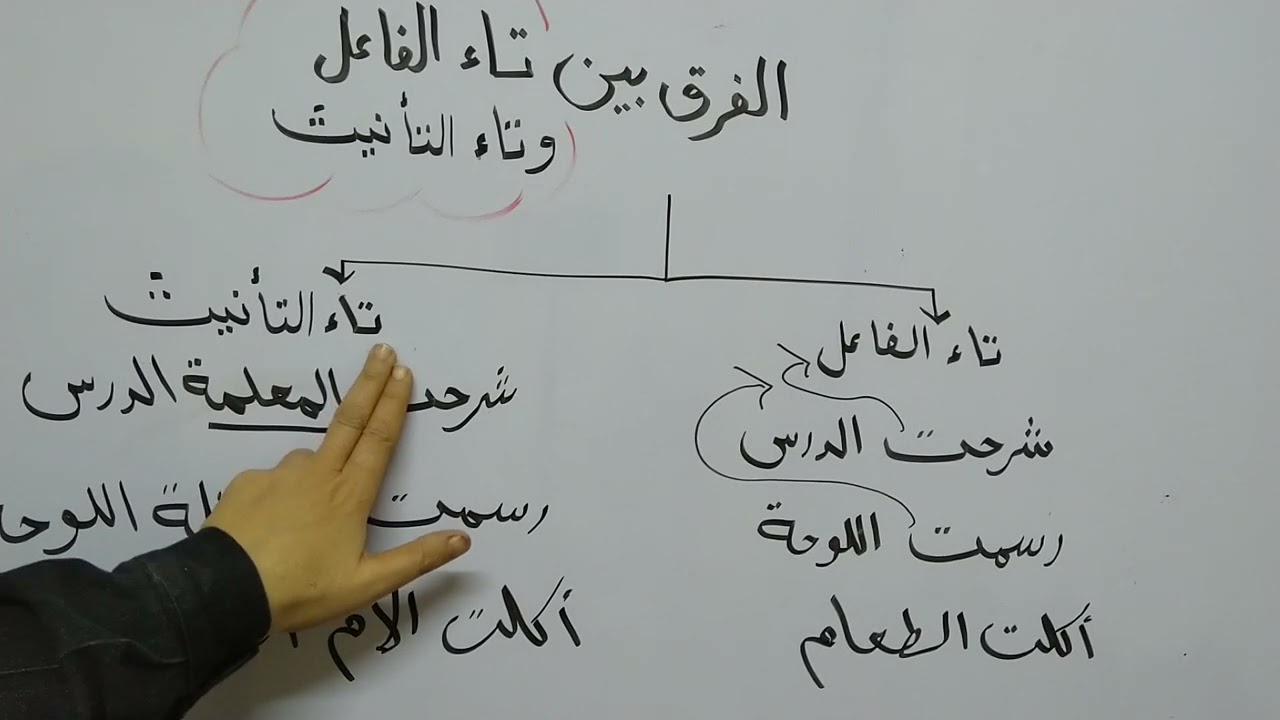 الفرق بين تاء الفاعل
وتاء التأنيث
تاء الفاعل
شرحت الدرس
رسمت اللوحة
أكلت الطعام
تاء التأنيث
شرحت المعلمة الدرس
رسمت اللوحة
أكلت الأم